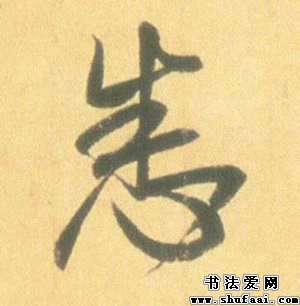 悉
书法爱网
www.shufaai.com